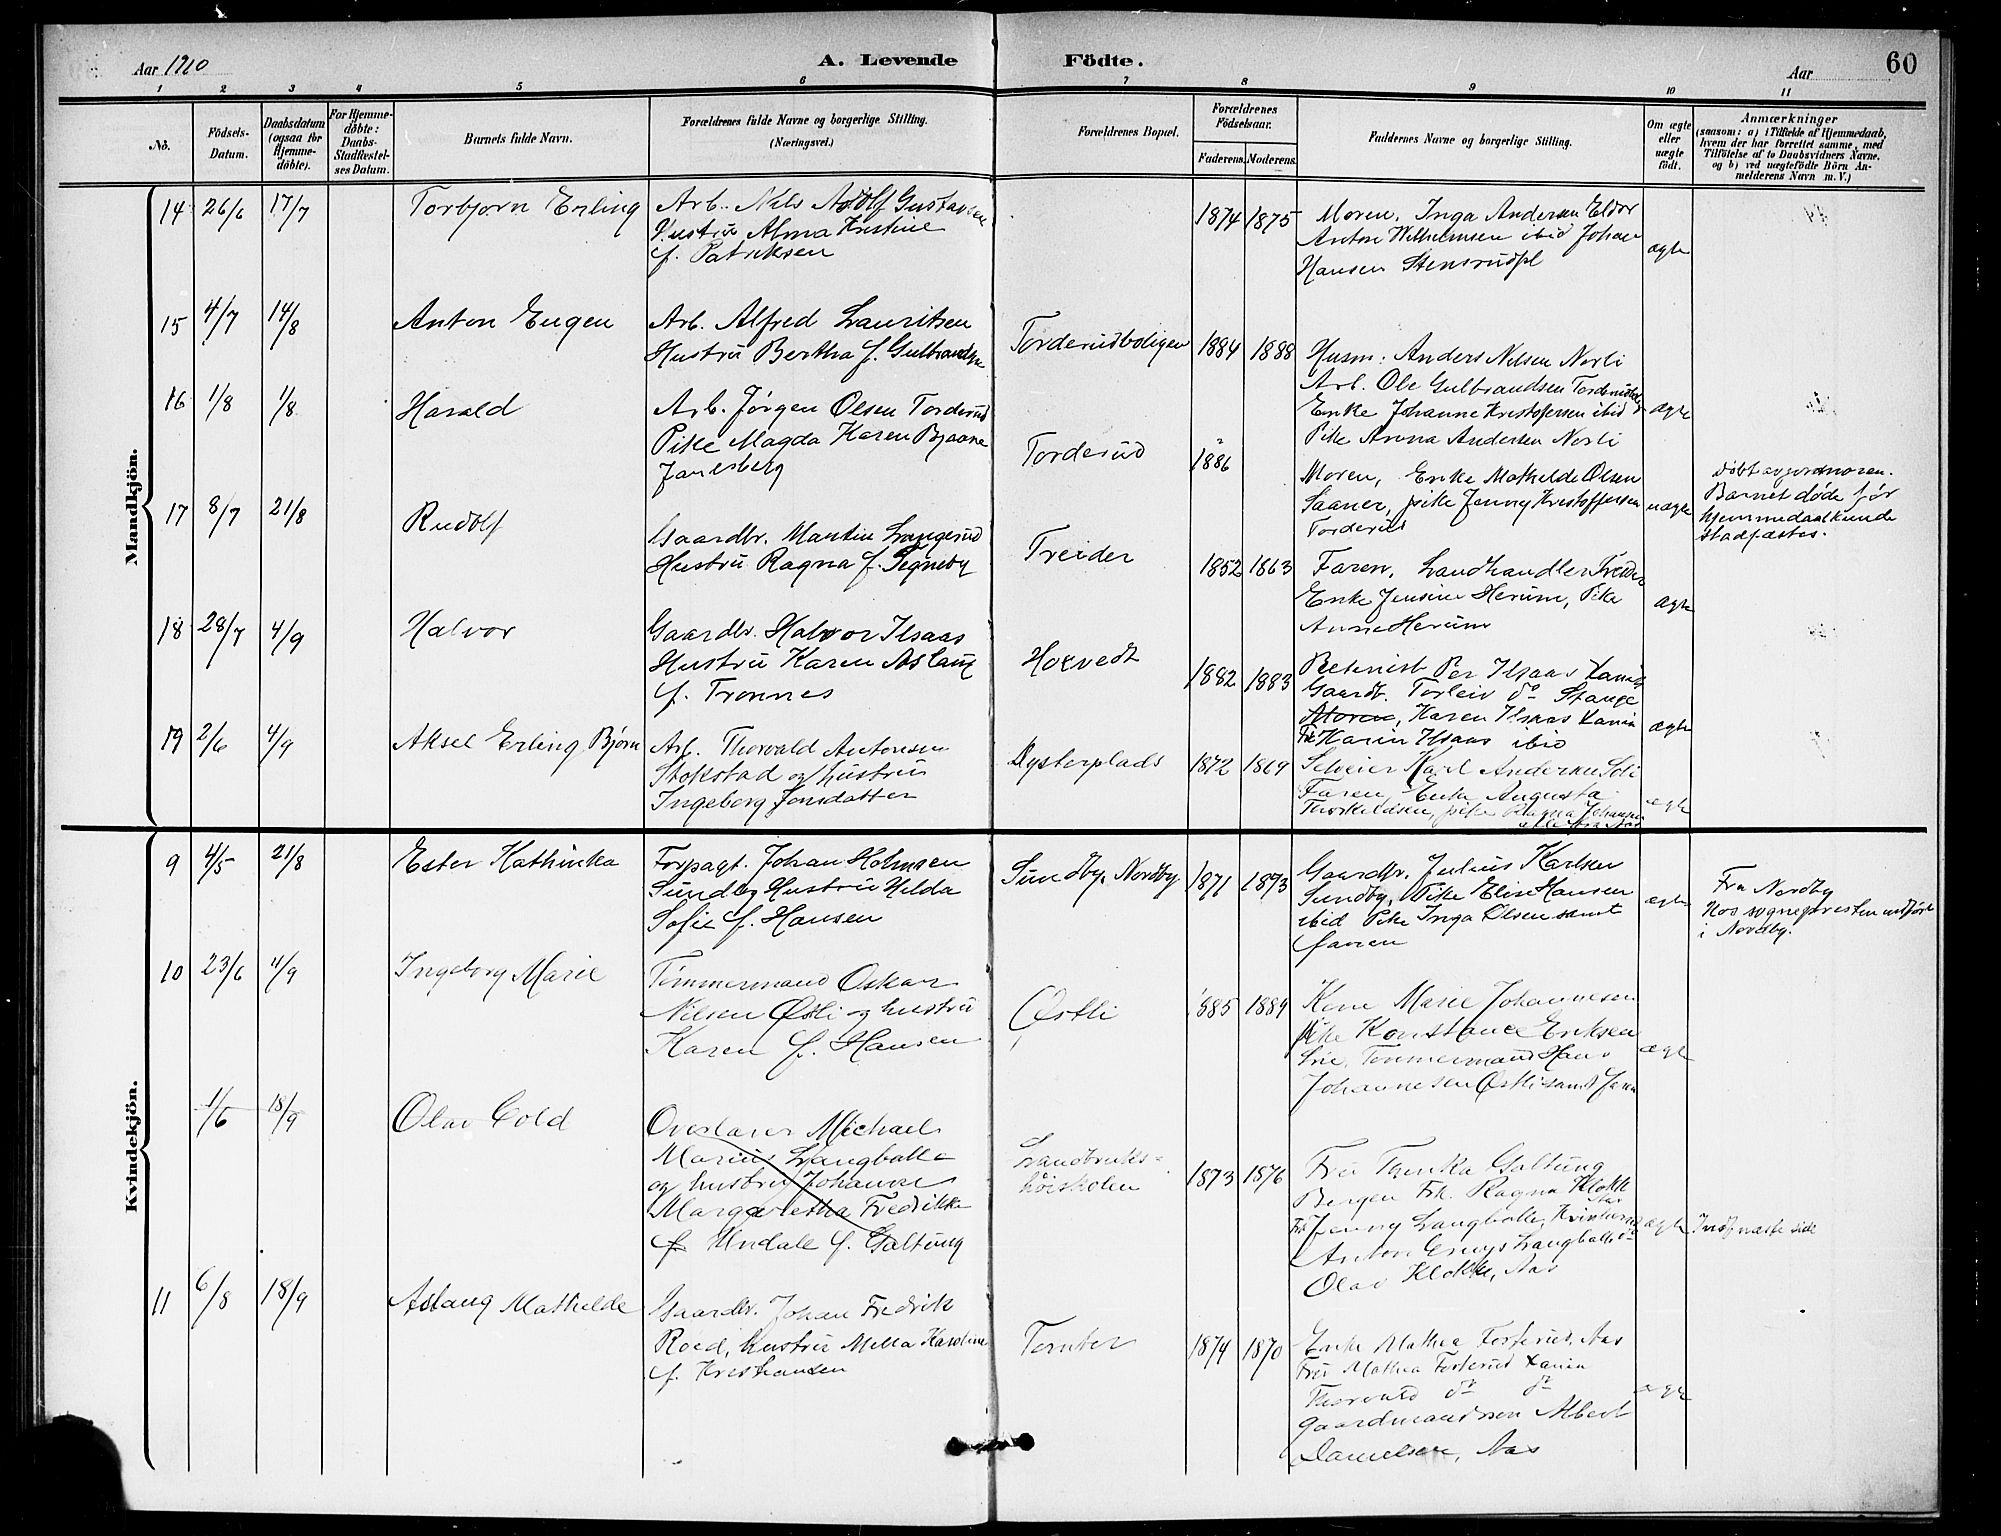 Aar 1910
A. Levende Födte.
Aar
60
1 2 3 4 5 6 7 8 9 10 11
No.
Födsels-Datum.
Daabsdatum (ogsaa for Hjemme-döbte).
For Hjemme-döbte: Daabs-Stadfæstel-ses Datum.
Barnets fulde Navn.
Forældrenes fulde Navne og borgerlige Stilling. (Næringsvei.)
Forældrenes Bopæl.
Forældrenes Födselsaar.
Faderens. Moderens.
Faddernes Navne og borgerlige Stilling.
Om ægte eller uægte födt.
Anmærkninger
(saasom: a) i Tilfælde af Hjemmedaab, hvem der har forrettet samme, med Tilföielse af to Daabsvidners Navne, og b) ved uægtefödte Börn An-melderens Navn m. V.)
Mandkjön.
14 26/6 17/7 Torbjørn Erling
Arb. Nils Adolf Gustavsen
Hustru Alma Kristine
f. Patriksen
1874 1875
Moren, Inga Andersen Eldor
Anton Wilhelmsen ibid Johan
Hansen Stensrudpl
ægte
15 4/7 14/8 Anton Eugen
Arb. Alfred Lauritsen
Hustru Bertha f. Gulbrandsen
Torderudboligen 1884 1888
Husm: Anders Nilsen Norli
Arb. Ole Gulbrandsen
Enke Johanne Kristoffersen ibid
Pike Anna Andersen Norli
ægte
16 1/8 1/8 Harald
Arb. Jørgen Olsen Torderud
Pike Magda Karen Bjaane
Torderud 1886
Moren, Enke Mathilde Olsen
Saaner, pike Jenny Kristoffersen
Torderud
uægte
Døbt av jordmoren.
Barnet døde før
hjemmedaab kunde
stadfæstes.
17 8/7 21/8 Rudolf
Gaardbr. Martin Langerud
Hustru Ragna f. Tegneby
Treider 1852 1863
Faren, Landhandler Treider
Enke Jensine Herum, Pike
Anne Herum
ægte
18 28/7 4/9 Halvor
Gaardbr. Halvor Ilsaas
Hustru Karen Aslaug
f. Tronnes
Hoxvedt 1882 1883
Per Ilsaas
Gaardb. Torleiv do Stange
Moren, Karen Ilsaas
Frk Karin Ilsaas ibid
ægte
19 2/6 4/9 Aksel Erling Bjørn
Arb. Thorvald Antonsen
Stokstad og hustru
Ingeborg Jonsdatter
Dysterplads 1872 1869
Selveier Karl Andersen Soli
Faren, Enke Augusta
Thorkildsen, pike Ragna Johansen
ægte
Kvindekjön.
9 4/5 21/8 Ester Kathinka
Forpagt. Johan Holmsen
Sundby Hustru Hilda
Sofie f. Hansen
Sundby, Nordby 1871 1873
Gaardbr. Julius Karlsen
Sundby, Pike Elise Hansen
ibid Pike Inga Olsen samt
faren
ægte
Fra Nordby
Hos sognepresten indført
i Nordby.
10 23/6 4/9 Ingeborg Marie
Tømmermand Oskar
Nilsen Østli og hustru
Karen f. Hansen
Østli 1885 1889
Kone Marie Johannesen
pike Konstance Eriksen
Tømmermand Hans
Johannesen Østli samt faren
ægte
1/6 18/9 Olav Cold
Overlærer Michael
Marius Langballe
og hustru Johanne
Margaretha Fredrikke
f. Undale f. Galtung
Landbruks=
høiskolen
1873 1876
Fru Galtung
Bergen Frk. Ragna Klokk
Aas
Frk Jenny Langballe,
Anton Langballe do
Olav Klokke, Aas
ægte
Indf næste side
11 6/8 18/9 Aslaug Mathilde
Gaardbr. Johan Fredrik
Roed, hustru Milla Karoline
f. Kristiansen
Tomter 1874 1870
Enke Mathea Forferud, Aas
Fru Mathea Forferud
Thorvald do do
Gaardmandssøn Albert
Danielsen, Aas
ægte